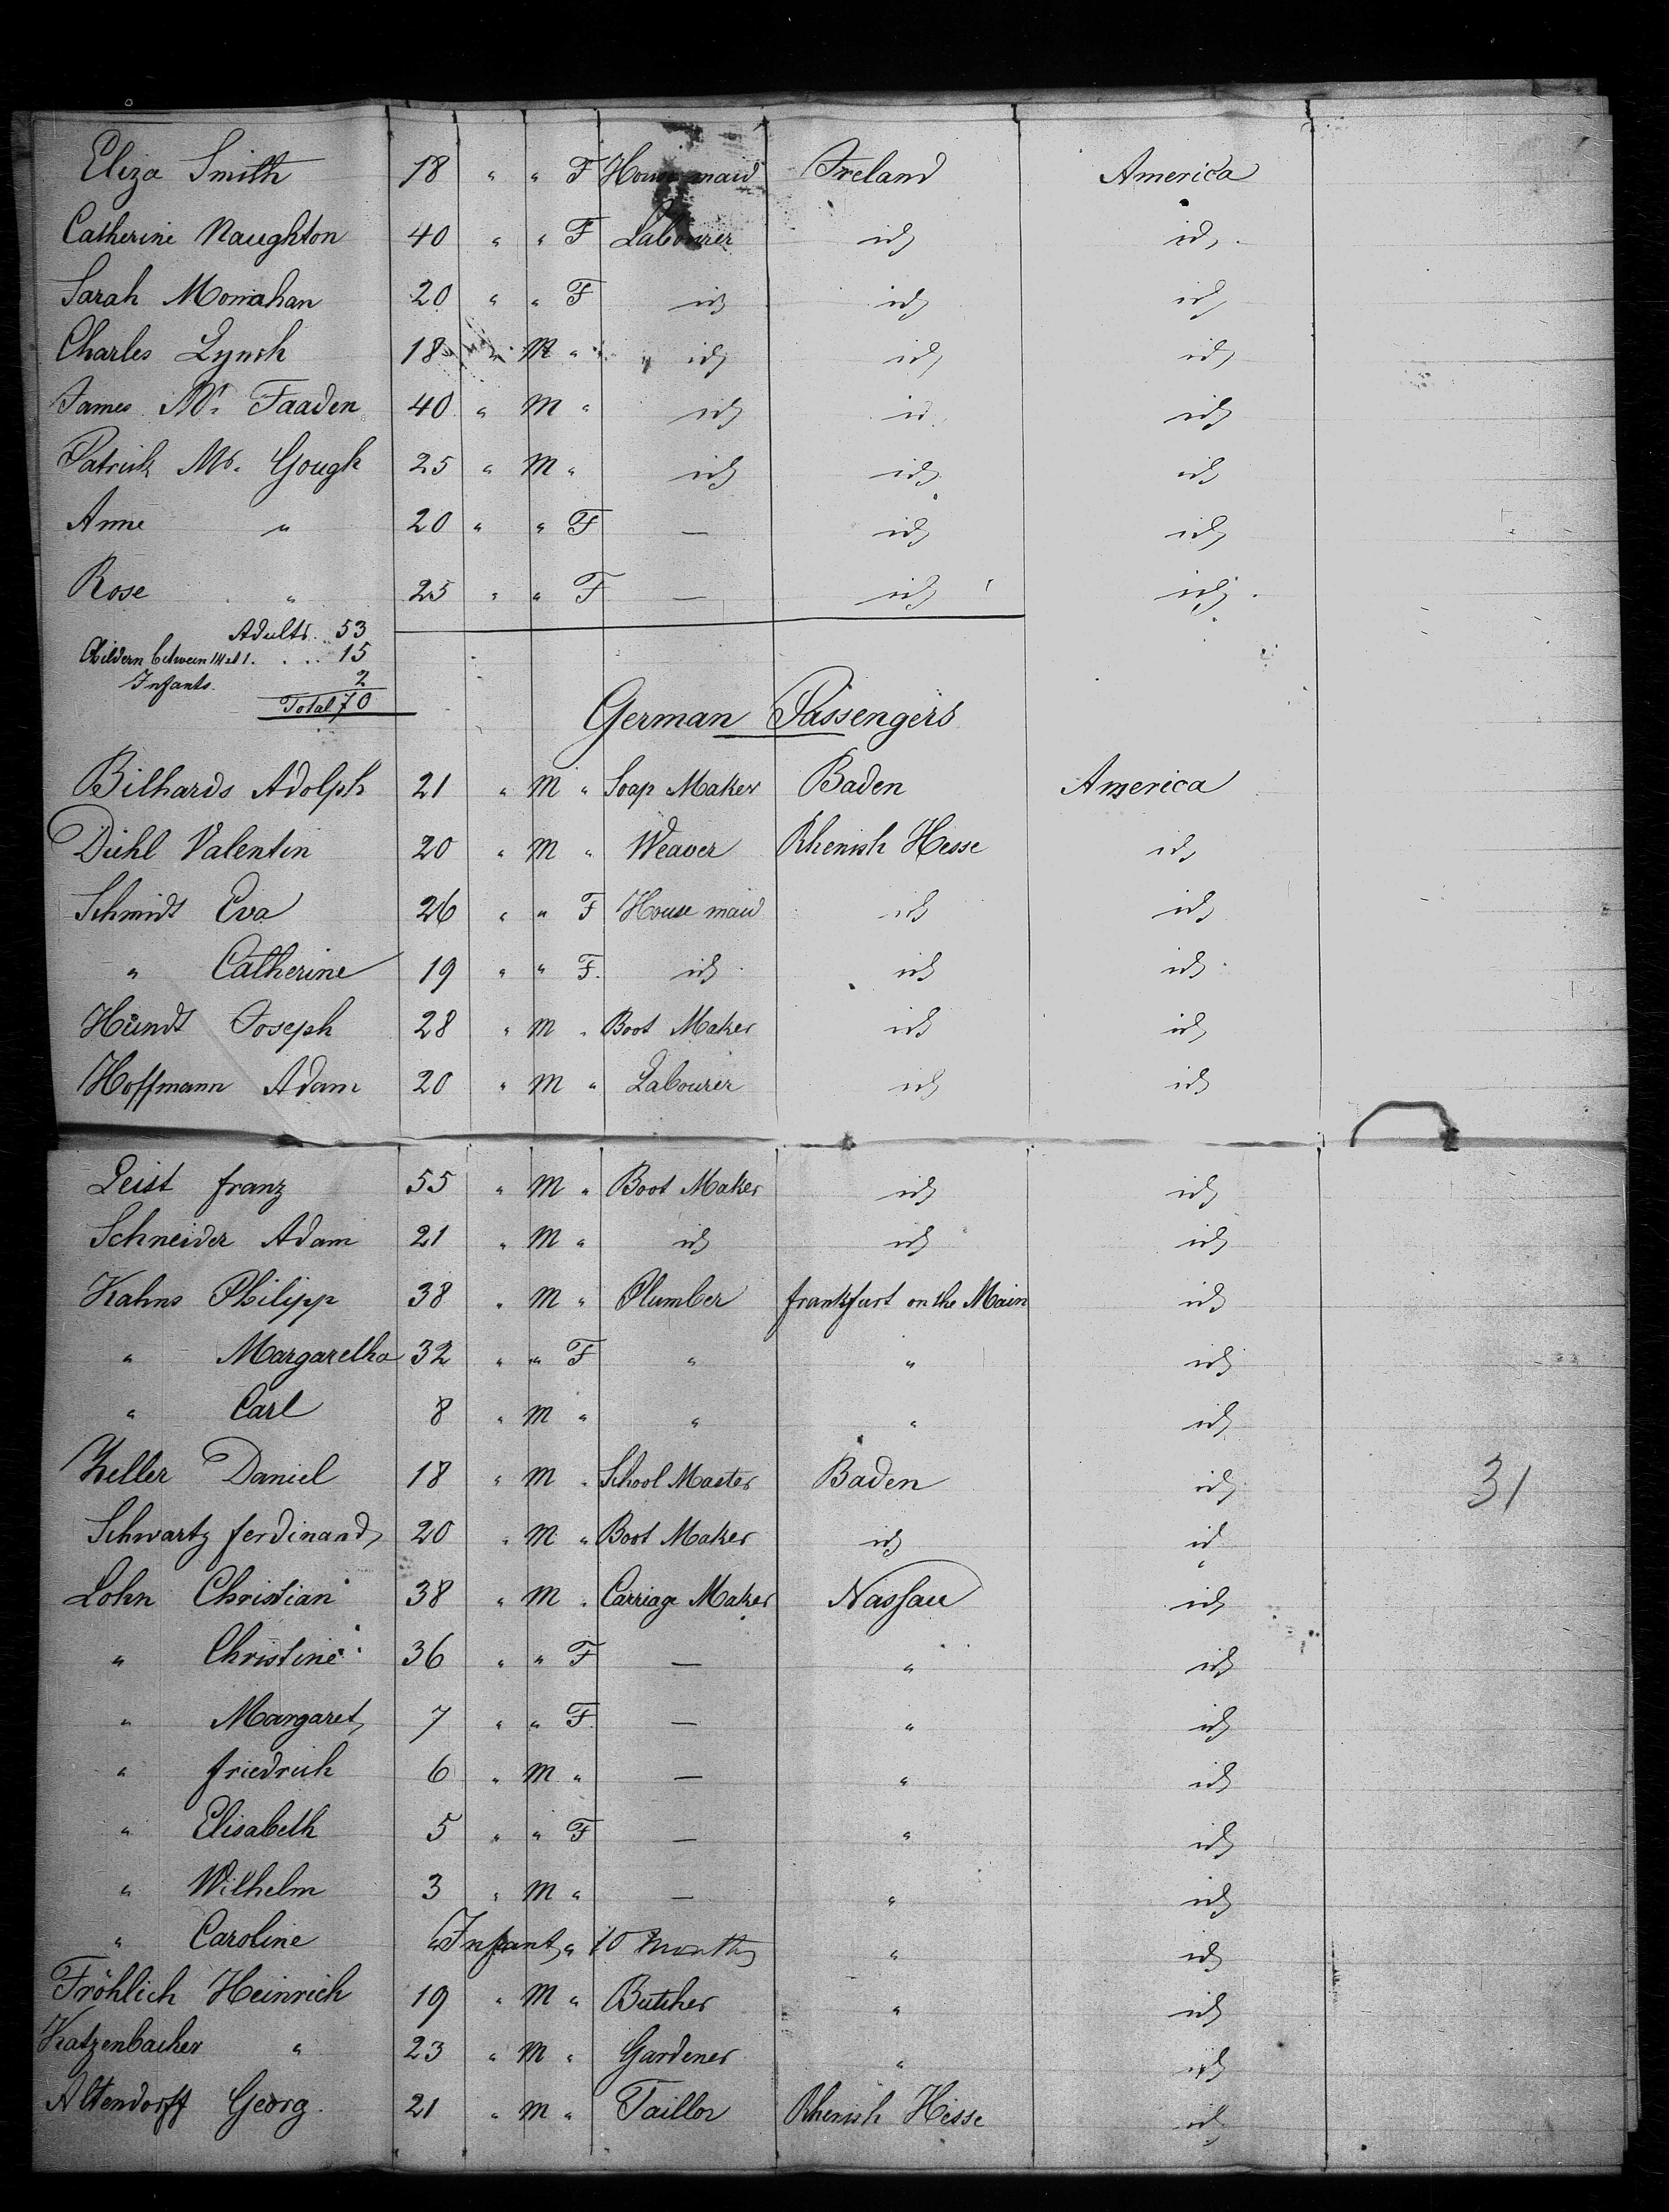 Eliza Smith 18 " " F House maid Ireland America
Catherine Naughton 40 " " F Labourer id id
Sarah Monahan 20 " " F id id id
Charles Lynch 18 " M " id id id
James Mc. Faaden 40 " M " id id id
Patrick Mc. Gough 25 " M " id id id
Anne " 20 " " F — id id
Rose " 25 " " F — id id
Adults .. 53
Childern between 14 et 1 . . . . 15
Infants. 2
Total 70
German Passengers
Bilhards Adolph 21 " M " Soap Maker Baden America
Diehl Valentin 20 " M " Weaver Rhenish Hesse id
Schmidt Eva 26 " " F House maid id id
" Catherine 19 " " F. id id id
Hundt Joseph 28 " M " Boot Maker id id
Hoffmann Adam 20 " M " Labourer id id
Leist franz 55 " M " Boot Maker id id
Schneider Adam 21 " M " id id id
Kahns Philipp 38 " M " Plumber frankfurt on the Main id
" Margaretha 32 " " F " " id
" Carl 8 " M " " " id
Keller Daniel 18 " M " School Master Baden id 31
Schwartz ferdinand 20 " M " Boot Maker id id
Lohn Christian 38 " M " Carriage Maker Nassau id
" Christine 36 " " F — " id
" Margaret 7 " " F — " id
" friedrich 6 " M " — " id
" Elisabeth 5 " " F — " id
" Wilhelm 3 " M " — " id
" Caroline " Infant " 10 Months " id
Fröhlich Heinrich 19 " M " Butcher " id
Katzenbacher " 23 " M " Gardener " id
Altendorff Georg. 21 " M " Taillor Rhenish Hesse id